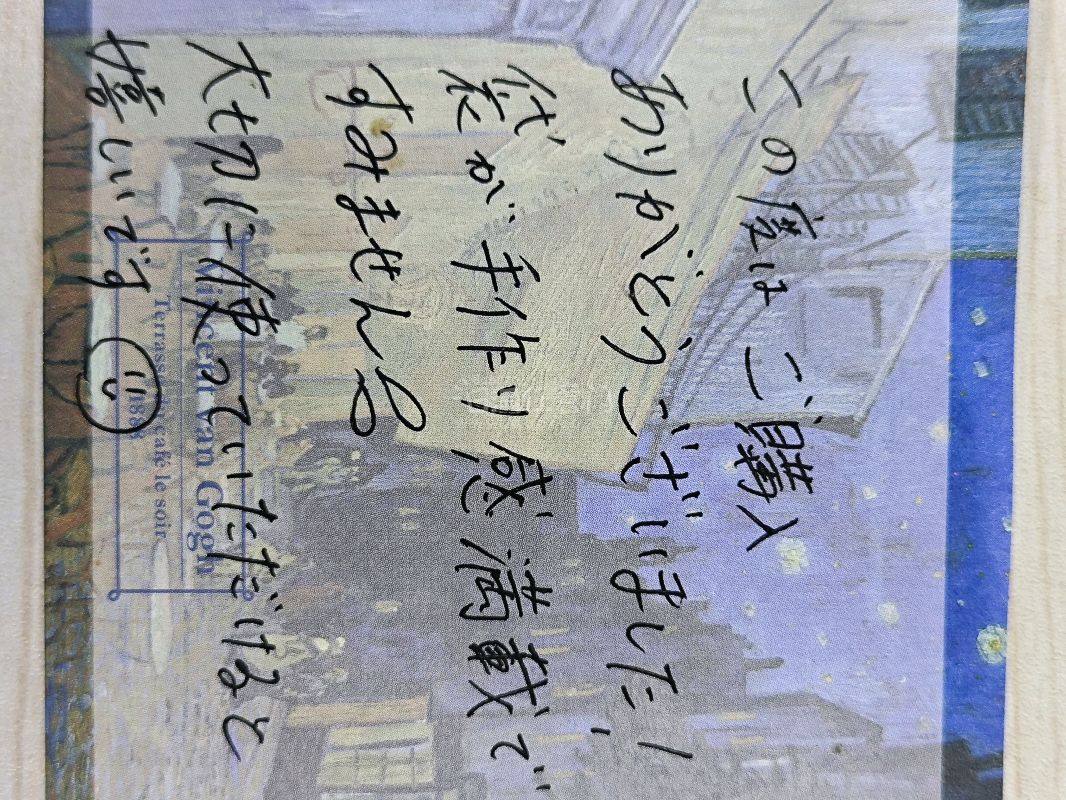 この度は ご購入
ありがとうございました!
袋が手作り感満載で
すみません
大切に使っていただけると
嬉しいです
Vincent van Gogh
Terrasse du café le soir
1888